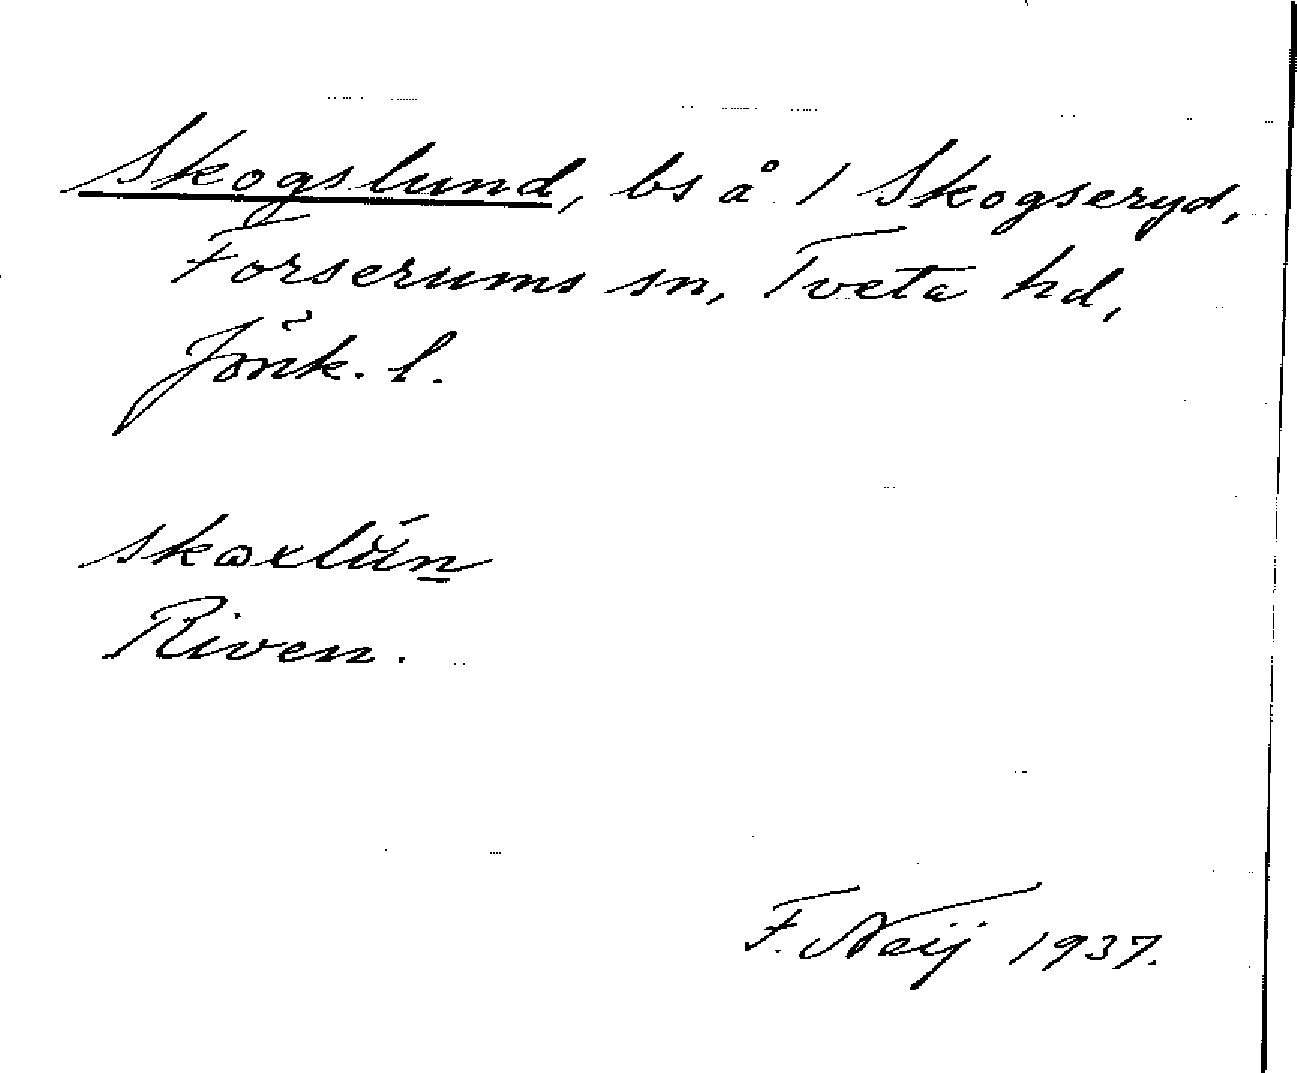 Skogslund, bs å 1 Skogseryd,
Forserums sn, Tveta hd,
Jönk. l.
Riven.
F. Neij 1937.